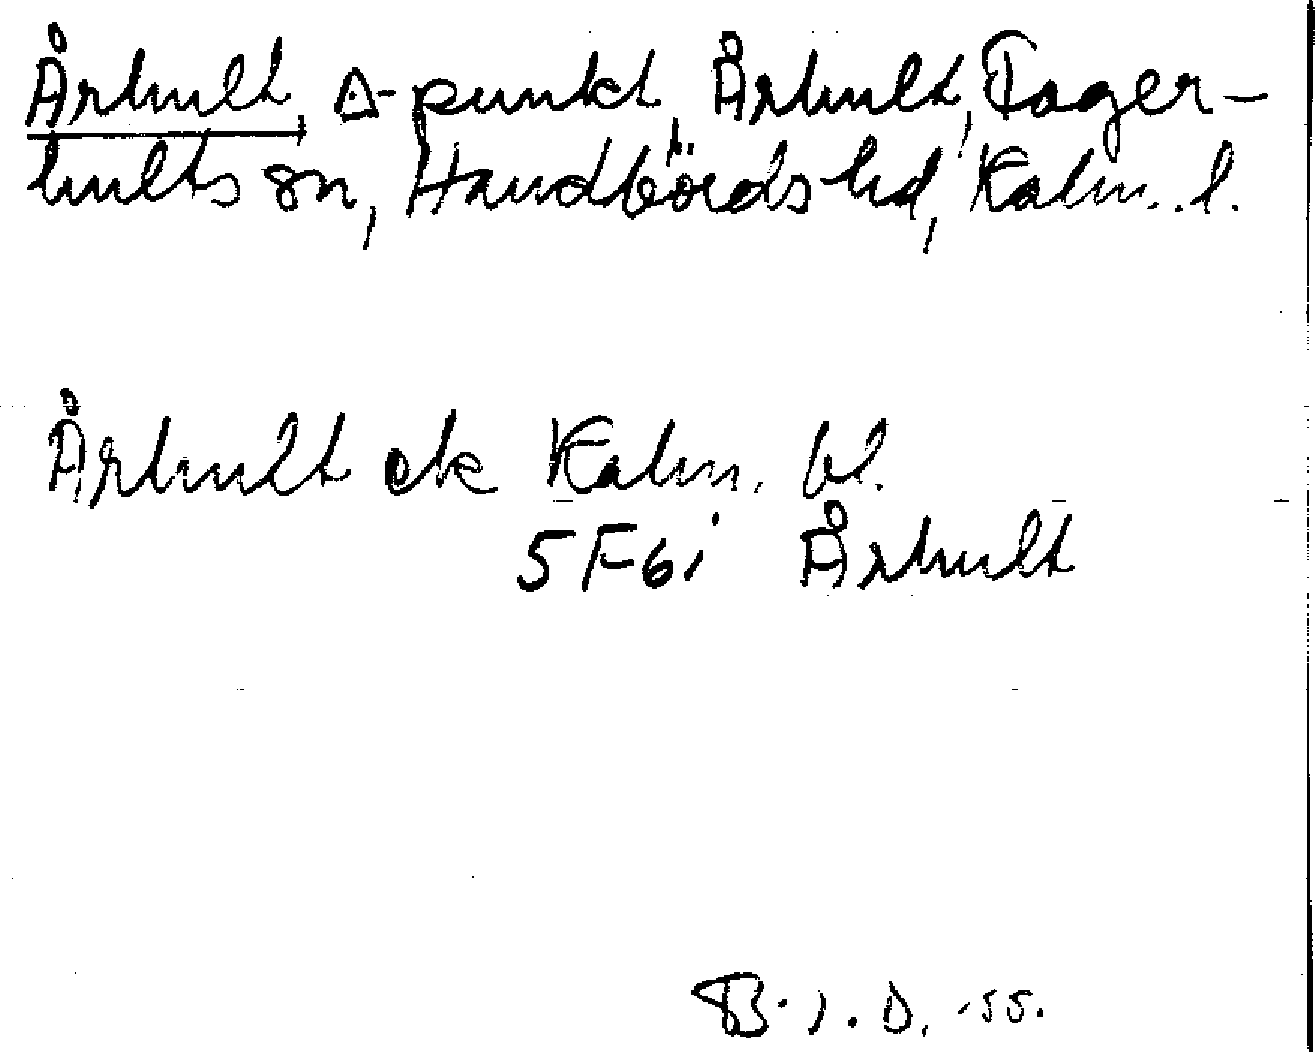 Århult, △-punkt, Århult, Fager-
hults sn, Handbörds hd, Kalm. l.
Århult ek Kalm. bl.
5 F 6 i Århult
B. J. D. -55.